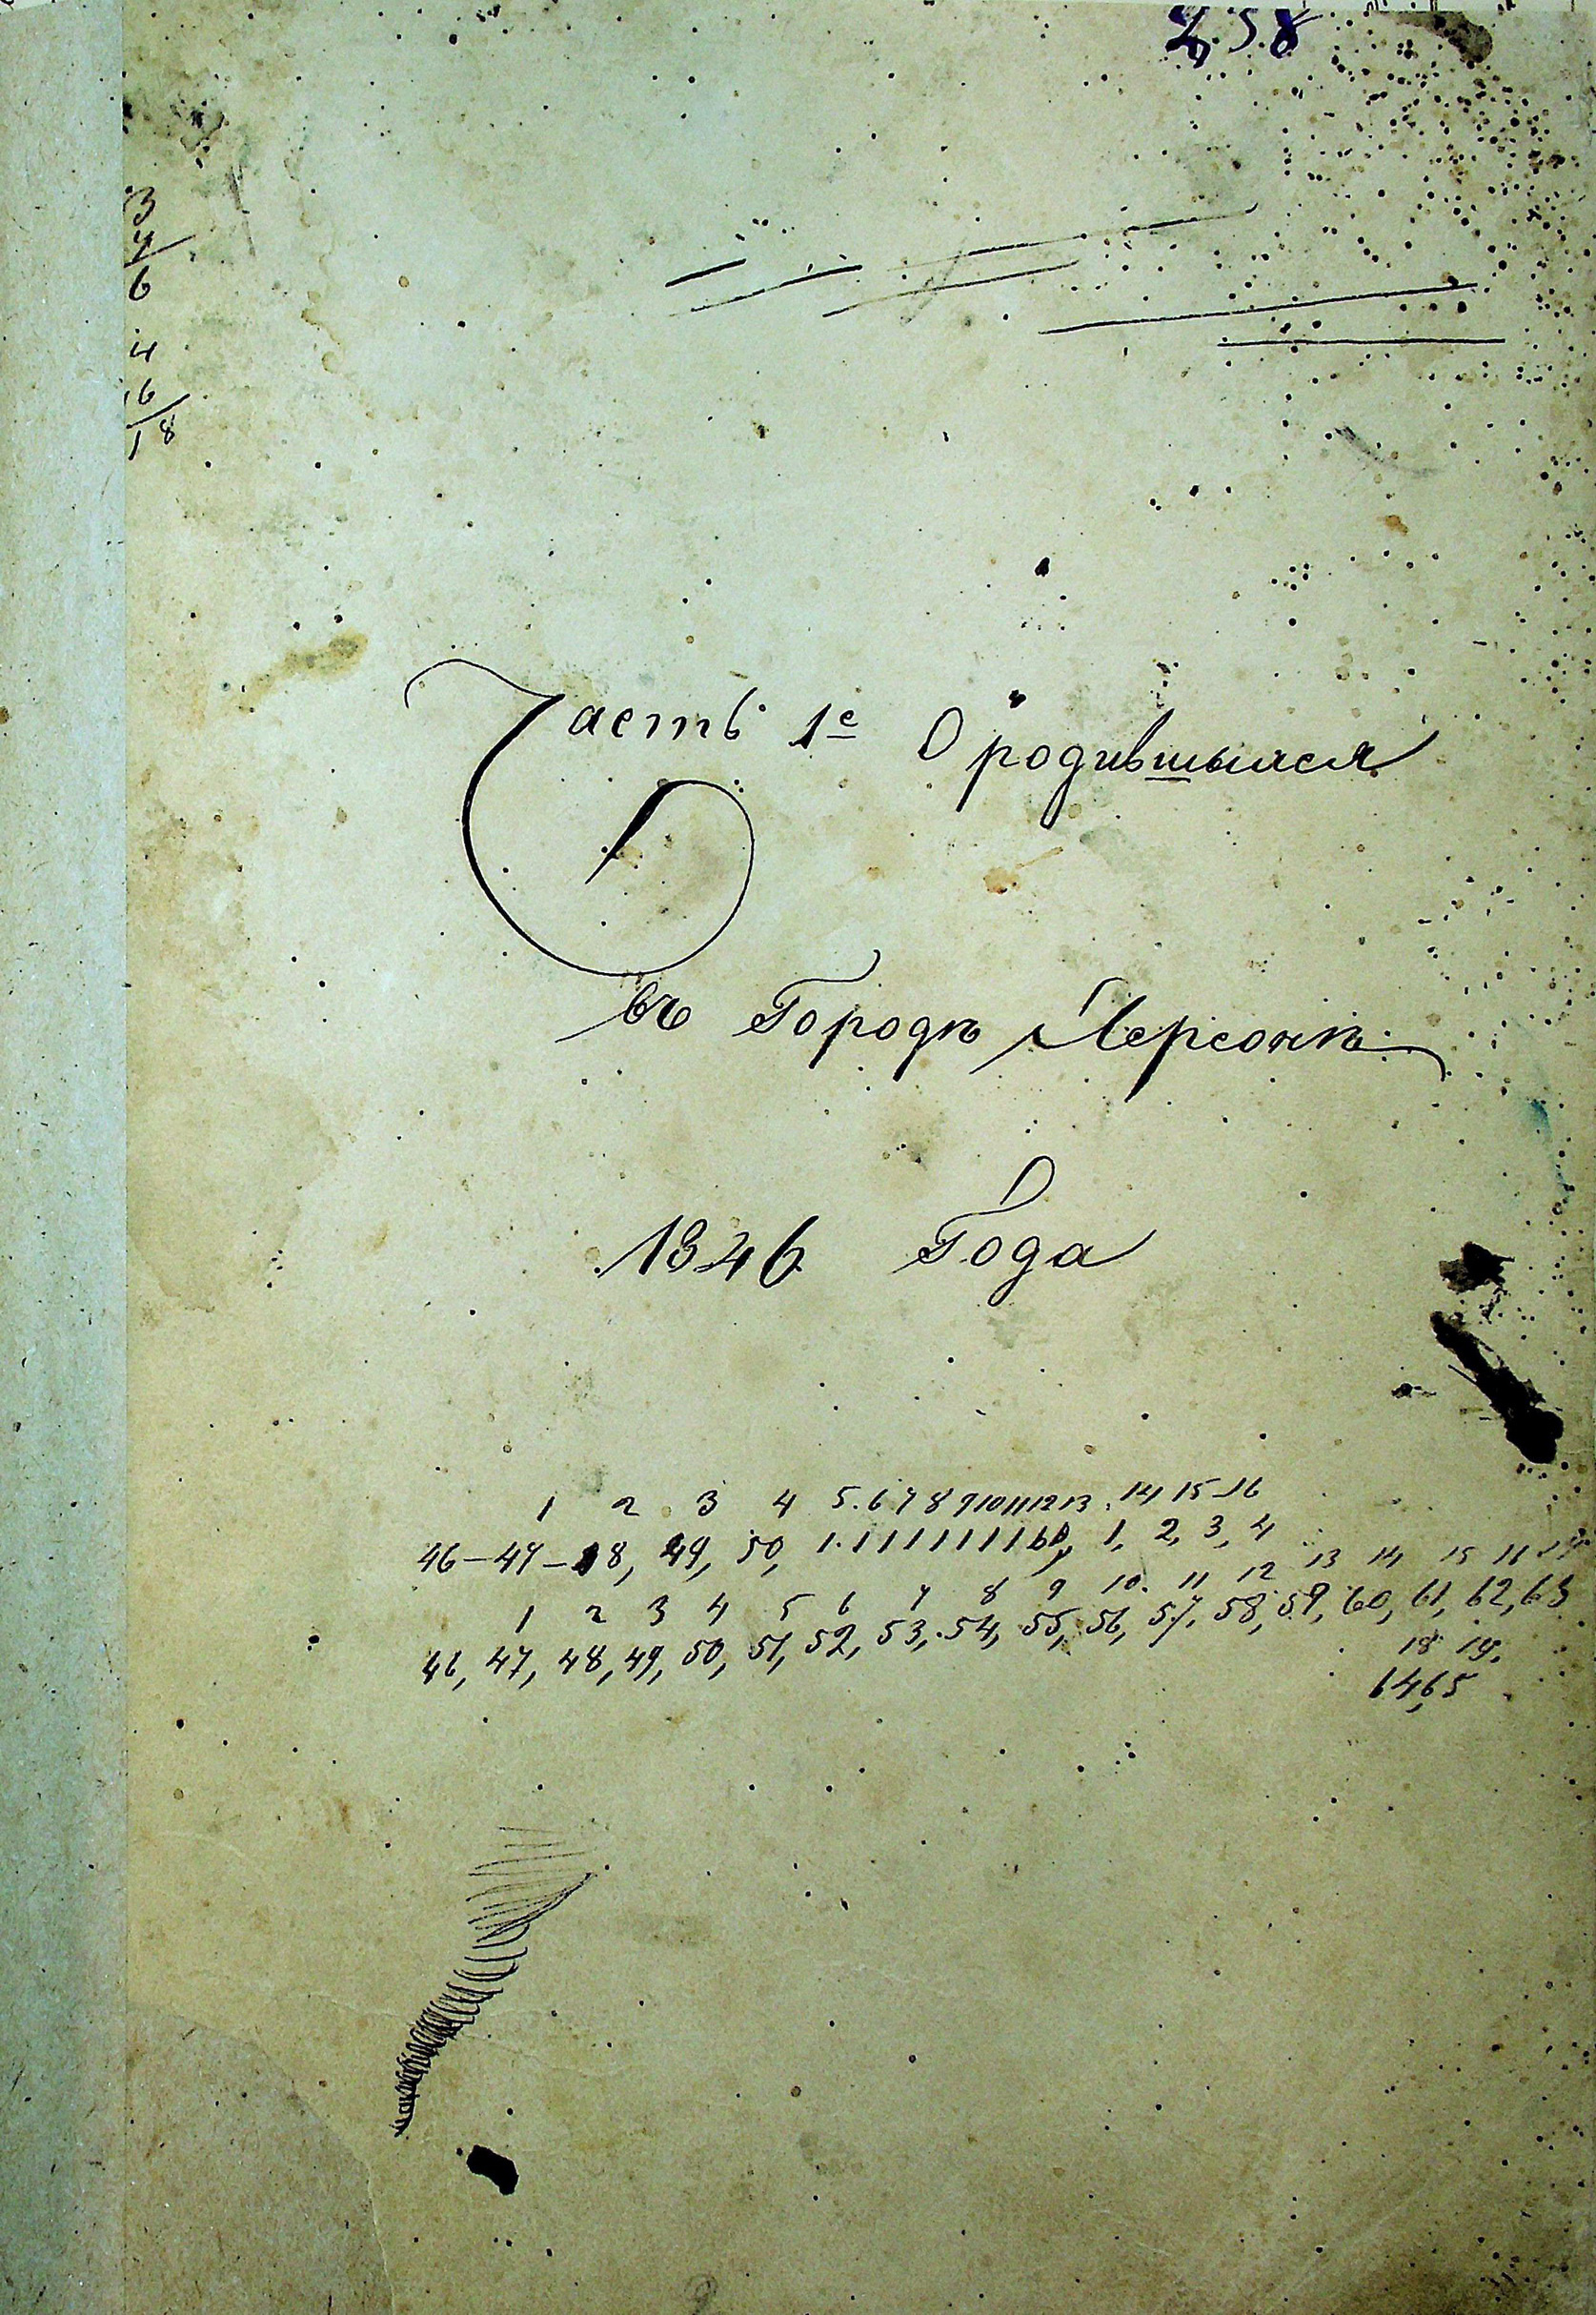 258
3
4
6
4
16
18
Часть 1е О родившыхся
въ Городѣ Херсонѣ
1846 Года
1 2 3 4 5. 6 7 8 9 10 11 12 13. 14 15-16
46-47-48, 49, 50, 1. 1 1 1 1 1 1 1 60, 1, 2, 3, 4
1 2 3 4 5 6 7 8 9 10. 11 12 13 14 15 16 17
46, 47, 48, 49, 50, 51, 52, 53, 54, 55, 56, 57, 58, 59, 60, 61, 62, 63
18 19.
64, 65